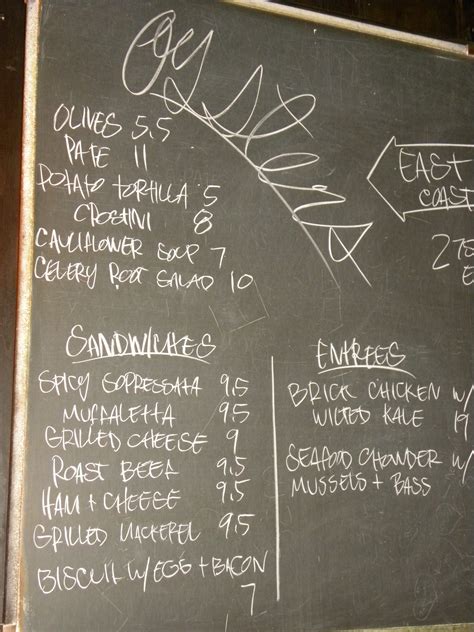 Oysters
OLIVES 5.5
PATE 11
POTATO TORTILLA 5
CROSTINI 8
CAULIFLOWER SOUP 7
CELERY ROOT SALAD 10
EAST
COAST
275
E
SANDWICHES
SPICY SOPRESSATA 9.5
MUFFALETTA 9.5
GRILLED CHEESE 9
ROAST BEEF 9.5
HAM + CHEESE 9.5
GRILLED MACKEREL 9.5
BISCUIT W/EGG + BACON
7
ENTREES
BRICK CHICKEN W/
WILTED KALE 19
SEAFOOD CHOWDER W/
MUSSELS + BASS